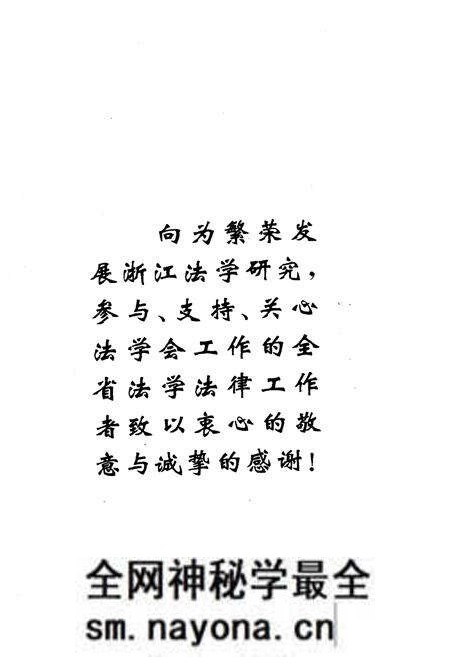 向为繁荣发
展浙江法学研究，
参与、支持、关心
法学会工作的全
省法学法律工作
者致以衷心的敬
意与诚挚的感谢！
全网神秘学最全
sm.nayona.cn